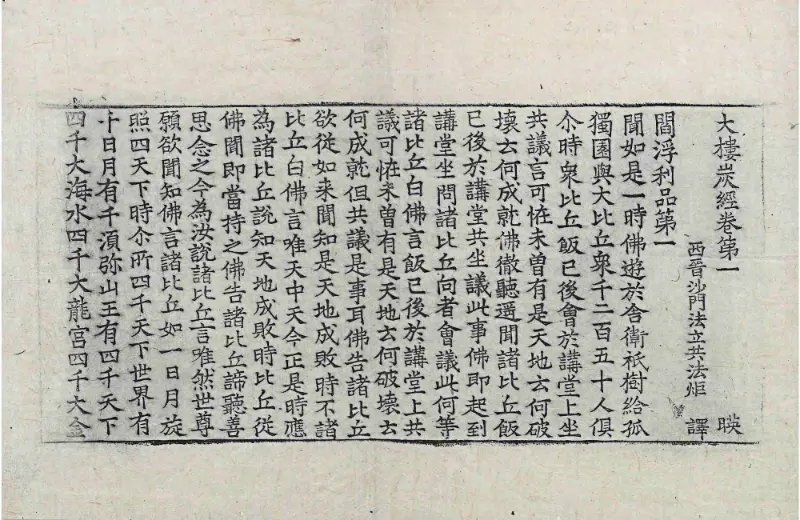 大樓炭經卷第一 暎
西晉沙門法立共法炬 譯
閻浮利品第一
聞如是一時佛遊於舍衛祇樹給孤
獨園與大比丘衆千二百五十人俱
尒時衆比丘飯已後會於講堂上坐
共議言可恠未曾有是天地云何破
壞云何成就佛徹聽遥聞諸比丘飯
已後於講堂共坐議此事佛即起到
講堂坐問諸比丘向者會議此何等
諸比丘白佛言飯已後於講堂上共
議可恠未曾有是天地云何破壞云
何成就但共議是事耳佛告諸比丘
欲從如来聞知是天地成敗時不諸
比丘白佛言唯天中天今正是時應
為諸比丘說知天地成敗時比丘從
佛聞即當持之佛告諸比丘諦聽善
思念之今為汝說諸比丘言唯然世尊
願欲聞知佛言諸比丘如一日月旋
照四天下時尒所四千天下世界有
千日月有千湏弥山王有四千天下
四千大海水四千大龍宮四千大金